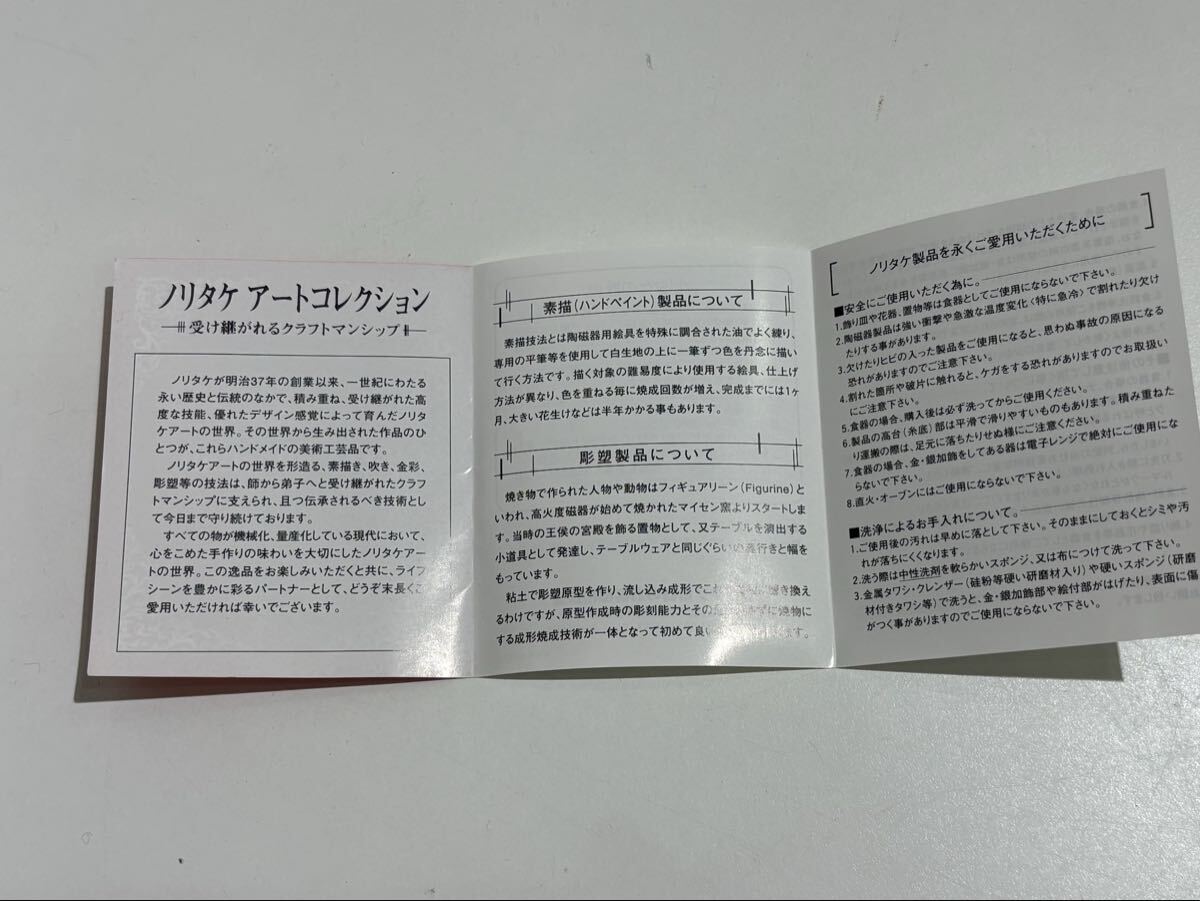 ノリタケ アートコレクション
受け継がれるクラフトマンシップ
ノリタケが明治37年の創業以来、一世紀にわたる
永い歴史と伝統のなかで、積み重ね、受け継がれた高
度な技能、優れたデザイン感覚によって育んだノリタ
ケアートの世界。その世界から生み出された作品のひ
とつが、これらハンドメイドの美術工芸品です。
ノリタケアートの世界を形造る、素描き、吹き、金彩、
彫塑等の技法は、師から弟子へと受け継がれたクラフ
トマンシップに支えられ、且つ伝承されるべき技術とし
て今日まで守り続けております。
すべての物が機械化、量産化している現代において、
心をこめた手作りの味わいを大切にしたノリタケアー
トの世界。この逸品をお楽しみいただくと共に、ライフ
シーンを豊かに彩るパートナーとして、どうぞ末長くご
愛用いただければ幸いでございます。
素描(ハンドペイント)製品について
素描技法とは陶磁器用絵具を特殊に調合された油でよく練り、
専用の平筆等を使用して白生地の上に一筆ずつ色を丹念に描い
て行く方法です。描く対象の難易度により使用する絵具、仕上げ
方法が異なり、色を重ねる毎に焼成回数が増え、完成までには1ヶ
月、大きい花生けなどは半年かかる事もあります。
彫塑製品について
焼き物で作られた人物や動物はフィギュアリーン(Figurine)と
いわれ、高火度磁器が始めて焼かれたマイセン窯よりスタートしま
す。当時の王侯の宮殿を飾る置物として、又テーブルを演出する
小道具として発達し、テーブルウェアと同じぐらいの奥行きと幅を
もっています。
粘土で彫塑原型を作り、流し込み成形でこれ き換え
るわけですが、原型作成時の彫刻能力とその 焼物に
する成形焼成技術が一体となって初めて良い ます。
ノリタケ製品を永くご愛用いただくために
■安全にご使用いただく為に。
1.飾り皿や花器、置物等は食器としてご使用にならないで下さい。
2.陶磁器製品は強い衝撃や急激な温度変化〈特に急冷〉で割れたり欠け
たりする事があります。
3.欠けたりヒビの入った製品をご使用になると、思わぬ事故の原因になる
恐れがありますのでご注意下さい。
4.割れた箇所や破片に触れると、ケガをする恐れがありますのでお取扱い
にご注意下さい。
5.食器の場合、購入後は必ず洗ってからご使用ください。
6.製品の高台(糸底)部は平滑で滑りやすいものもあります。積み重ねた
り運搬の際は、足元に落ちたりせぬ様にご注意ください。
7.食器の場合、金・銀加飾をしてある器は電子レンジで絶対にご使用にな
らないで下さい。
8.直火・オーブンにはご使用にならないで下さい。
■洗浄によるお手入れについて。
1.ご使用後の汚れは早めに落として下さい。そのままにしておくとシミや汚
れが落ちにくくなります。
2.洗う際は中性洗剤を軟らかいスポンジ、又は布につけて洗って下さい。
3.金属タワシ・クレンザー(硅粉等硬い研磨材入り)や硬いスポンジ(研磨
材付きタワシ等)で洗うと、金・銀加飾部や絵付部がはげたり、表面に傷
がつく事がありますのでご使用にならないで下さい。